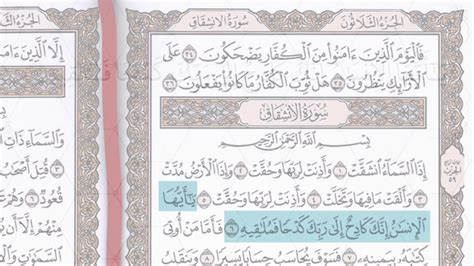 الجُزْءُ الثَّلَاثُونَ
سُورَةُ الِانشِقَاقِ
فَٱلْيَوْمَ ٱلَّذِينَ ءَامَنُوا۟ مِنَ ٱلْكُفَّارِ يَضْحَكُونَ ٣٤ عَلَى
ٱلْأَرَآئِكِ يَنظُرُونَ ٣٥ هَلْ ثُوِّبَ ٱلْكُفَّارُ مَا كَانُوا۟ يَفْعَلُونَ ٣٦
سُورَةُ الِانشِقَاقِ
بِسْمِ ٱللَّهِ ٱلرَّحْمَٰنِ ٱلرَّحِيمِ
إِذَا ٱلسَّمَآءُ ٱنشَقَّتْ ١ وَأَذِنَتْ لِرَبِّهَا وَحُقَّتْ ٢ وَإِذَا ٱلْأَرْضُ مُدَّتْ
٣ وَأَلْقَتْ مَا فِيهَا وَتَخَلَّتْ ٤ وَأَذِنَتْ لِرَبِّهَا وَحُقَّتْ ٥ يَٰٓأَيُّهَا
ٱلْإِنسَٰنُ إِنَّكَ كَادِحٌ إِلَىٰ رَبِّكَ كَدْحًا فَمُلَٰقِيهِ ٦ فَأَمَّا مَنْ أُوتِىَ
كِتَٰبَهُۥ بِيَمِينِهِۦ ٧ فَسَوْفَ يُحَاسَبُ حِسَابًا يَسِيرًا ٨ وَيَنقَلِبُ
الحزب
٥٩
إِلَّا ٱلَّذِينَ
وَٱلسَّمَآءِ ذَاتِ
٣ قُتِلَ أَصْحَٰبُ
قُعُودٌ ٦
مِنْهُمْ إِلَّآ أَن
ٱلسَّمَٰوَٰتِ